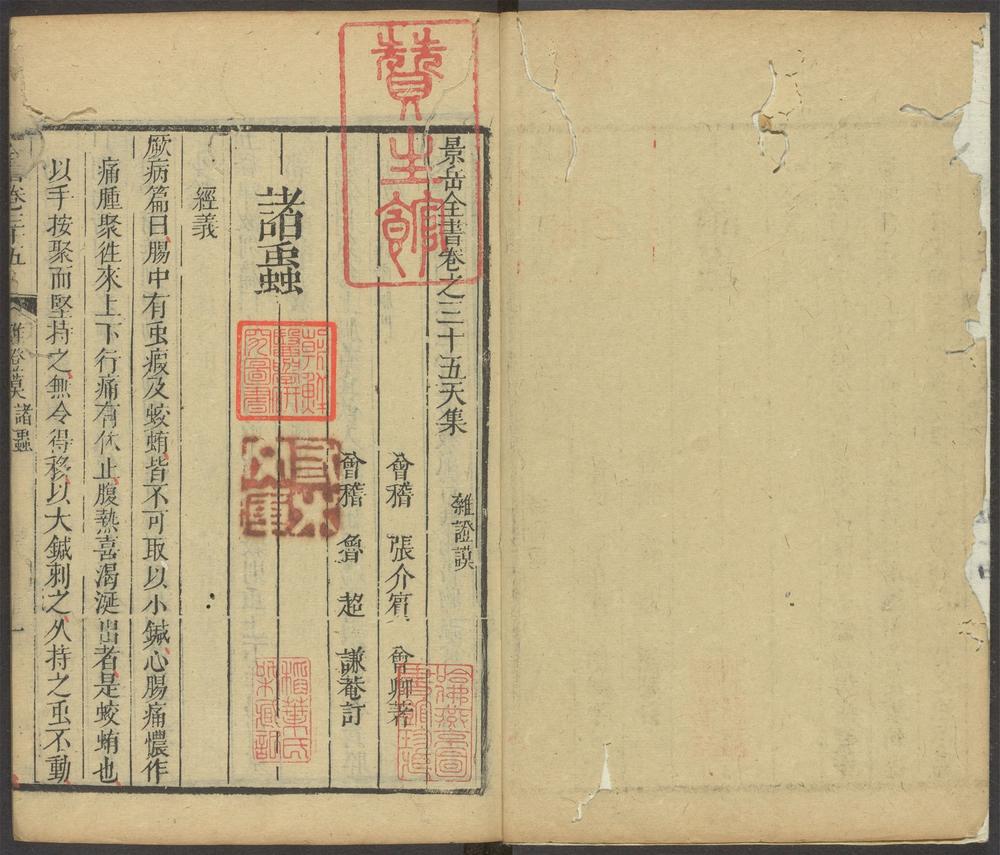 景岳全書卷之三十五天集
雜證謨
會稽 張介賔 會卿著
會稽 魯 超 謙菴訂
諸蟲
經義
厥病篇曰腸中有虫瘕及蛟蛕皆不可取以小鍼心腸痛憹作
痛腫聚徃來上下行痛有休止腹熱喜渴涎出者是蛟蛕也
以手按聚而堅持之無令得移以大鍼刺之久持之虫不動
卷三十五
雜證謨 諸蟲
一
贊生館
哈佛燕京圖書館珍藏
稻葉氏